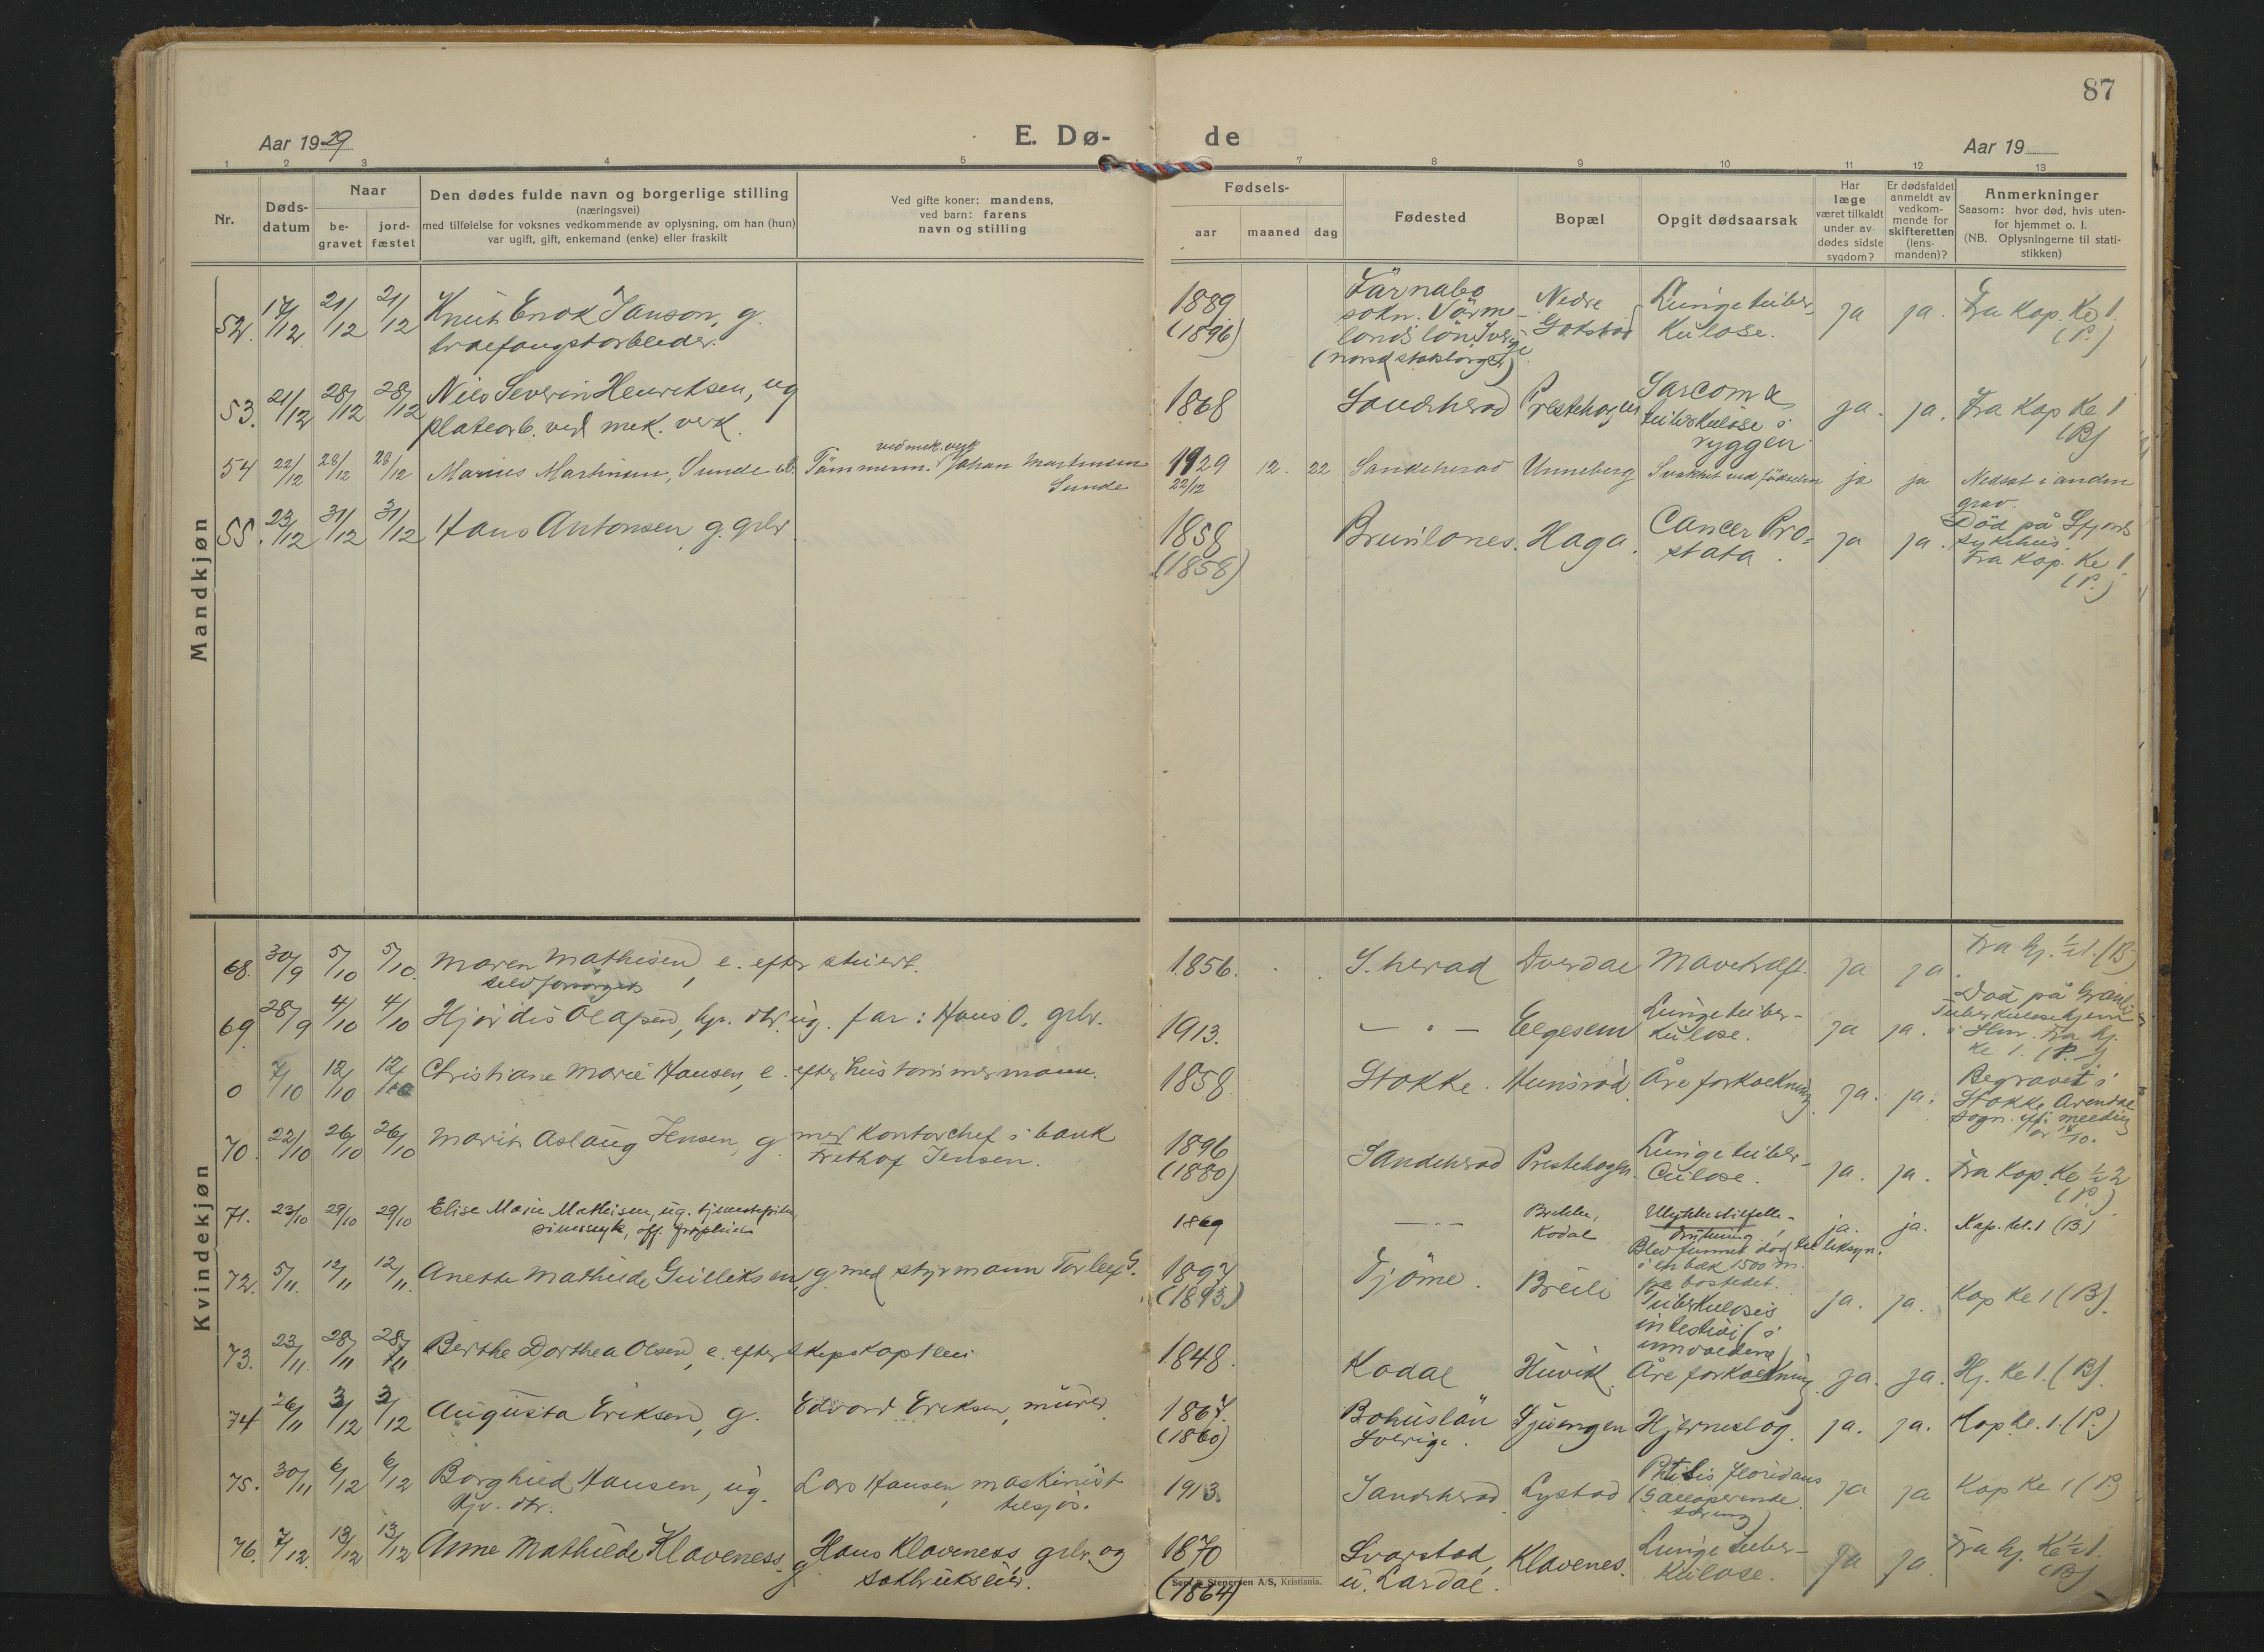 87
Aar 1929
E. Dø-
de
Aar 19
1 2 3 4 5 7 8 9 10 11 12 13
Nr.
Døds-
datum
Naar
be-
gravet
jord-
fæstet
Den dødes fulde navn og borgerlige stilling
(næringsvei)
med tilføielse for voksnes vedkommende av oplysning, om han (hun)
var ugift, gift, enkemand (enke) eller fraskilt
Ved gifte koner: mandens,
ved barn: farens
navn og stilling
Fødsels-
aar maaned dag
Fødested
Bopæl
Opgit dødsaarsak
Har
læge
været tilkaldt
under av-
dødes sidste
sygdom?
Er dødsfaldet
anmeldt av
vedkom-
mende for
skifteretten
(lens-
manden)?
Anmerkninger
Saasom: hvor død, hvis uten-
for hjemmet o. l.
(NB. Oplysningerne til stati-
stikken)
Mandkjøn
52. 17/12 21/12 21/12 Knut Enok Janson, g.
1889
(1896)
Färnabo
sokn. Värm-
lands län, Sverige
(norsk statsborger)
Nedre
Gokstad
Lungetuber-
kulose.
ja ja. Fra kap. Kl 1.
(P.)
53. 21/12 28/12 28/12 Nils Severin Henriksen, ug
platearb. ved mek. verk.
1868 Sandeherad Prestehagen
Sarcom &
tuberkulose i
ryggen
ja. ja. Fra Kap Kl 1
(B)
54 22/12 28/12 28/12 Marius Martinsen, Sunde
ved mek. verk
Tømmerm. Johan Martinsen
Sunde
1929 12. 22
22/12
Sandeherad Unneberg Svakhet ved fødselen ja ja Nedsat i anden
grav.
55. 23/12 31/12 31/12 Hans Antonsen, g. grbr
1858
(1858)
Brunlanes. Haga.
Cancer Pro-
stata.
ja ja.
Død på Sfjords
sykehus.
Fra Kap. Kl 1.
(P.)
Kvindekjøn
68. 30/9 5/10 5/10. Maren Mathisen, e. efter
selvforsørget
1856. S. herad Dverdal ja ja. Fra hj. ½1. (B)
69. 28/9 4/10 4/10 Hjørdis Olafsen, hjv. dtr. ug. far: Hans O. grbr.
1913. — " — Elgesem
Lungetuber-
kulose.
ja ja.
Død på Granli
Tuberkulosehjem
i Fra hj.
Kl 1. (P.)
0 7/10 12/10 12/10 Christiane Marie Hansen, e. efter hustømmermann.
1858 Stokke. Hunsrød. Åreforkalkning ja. ja.
Begravet i
Stokke, Arendal
sogn. melding
av 14/10.
70. 22/10 26/10 26/10 Marit Aslaug Jensen, g. med Kontorchef i bank
Frethof Jensen.
1896
(1880)
Sandeherad Prestehagen
Lungetuber-
culose.
ja. ja. Fra Kap. Kl ½2
(P.)
71. 23/10 29/10 29/10 Elise Marie Mathisen, ug.
sinnssyk, off.
1869 — " —
Kodal
Ulykkestilfelle -
drukning.
Blev funnet død
i en bæk 1500 m.
fra bostedet.
ja. ja. Kap. kl. 1 (B.)
72. 5/11. 12/11 12/11. Anette Mathilde Gulliksen, g. med styrmann Torleif G.
1897
(1893.)
Tjøme. Breili
Tuberkulosis
intestini (i
innvoldene)
ja. ja. Kap Kl 1 (B).
73. 23/11. 28/11 28/11 Berthe Dorthea Olsen, e. efter skipskaptein
1848. Kodal Huvik. Åreforkalkning ja. ja. Hj. Kl 1. (B).
74 26/11 3/12 3/12 Augusta Eriksen, g. Edvard Eriksen, murer
1867.
(1860)
Bohuslän
Sverige.
Hjerneslag. ja. ja. Kap kl. 1. (P.)
75. 30/11 6/12 6/12 Borghild Hansen, ug. Lars Hansen, maskinist
Hjv. dtr. tilsjøs.
1913. Sandeherad Lystad
Phtisis floridans
(Galloperende
tæring)
ja ja Kap Kl 1 (P.)
76. 7/12. 13/12 13/12 Anne Mathilde Klaveness. g. Hans Klaveness, grbr. og
1870
(1864)
Svarstad,
u. Lardal.
Klavenes.
Lungetuber-
kulose.
ja ja. Fra hj. Kl ½1.
(B)
Sem & Stenersen A/S, Kristiania.